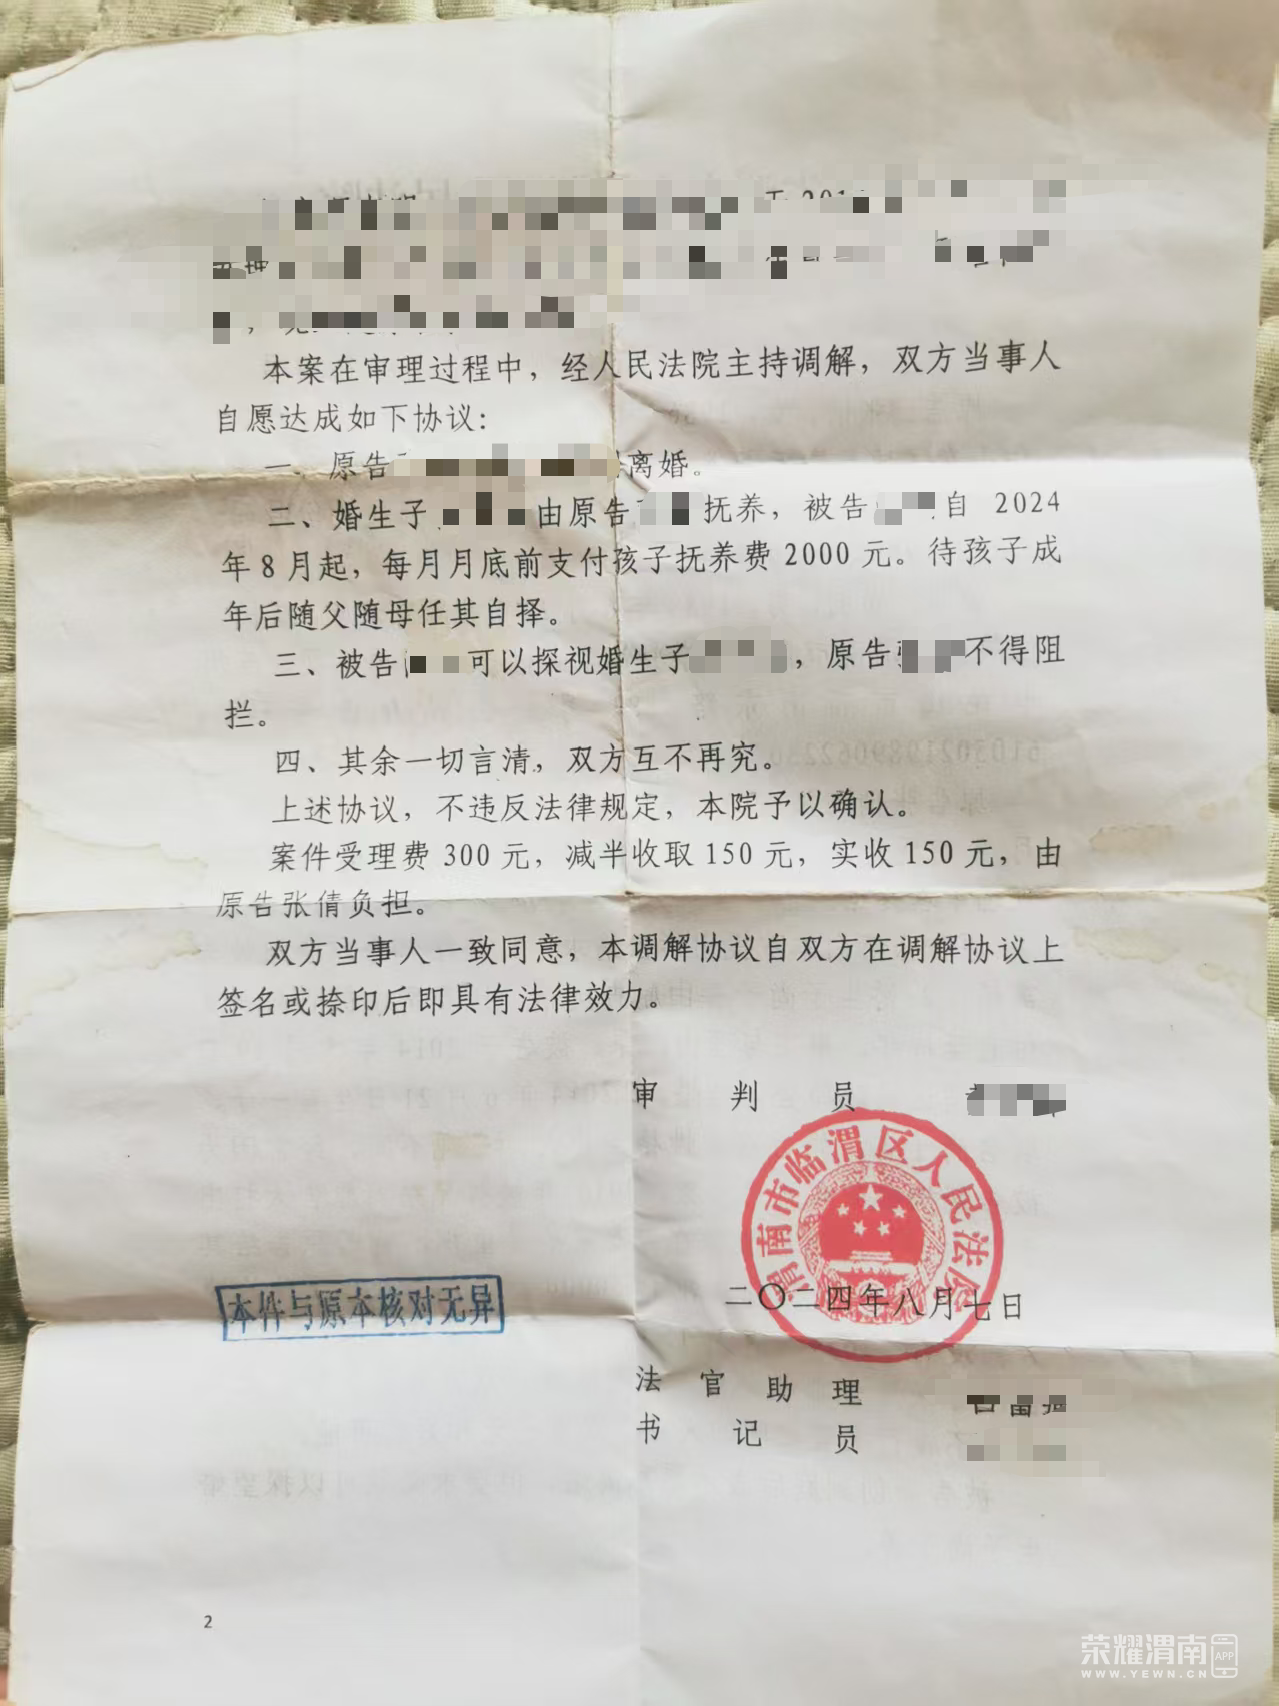 本案在审理过程中，经人民法院主持调解，双方当事人
自愿达成如下协议：
一、原告 离婚。
二、婚生子 由原告 抚养，被告 自 2024
年 8 月起，每月月底前支付孩子抚养费 2000 元。待孩子成
年后随父随母任其自择。
三、被告 可以探视婚生子 ，原告 不得阻
拦。
四、其余一切言清，双方互不再究。
上述协议，不违反法律规定，本院予以确认。
案件受理费 300 元，减半收取 150 元，实收 150 元，由
原告张倩负担。
双方当事人一致同意，本调解协议自双方在调解协议上
签名或捺印后即具有法律效力。
审 判 员
渭南市临渭区人民法院
二〇二四年八月七日
本件与原本核对无异
法 官 助 理
书 记 员
2
荣耀渭南 APP
WWW.YEWN.CN